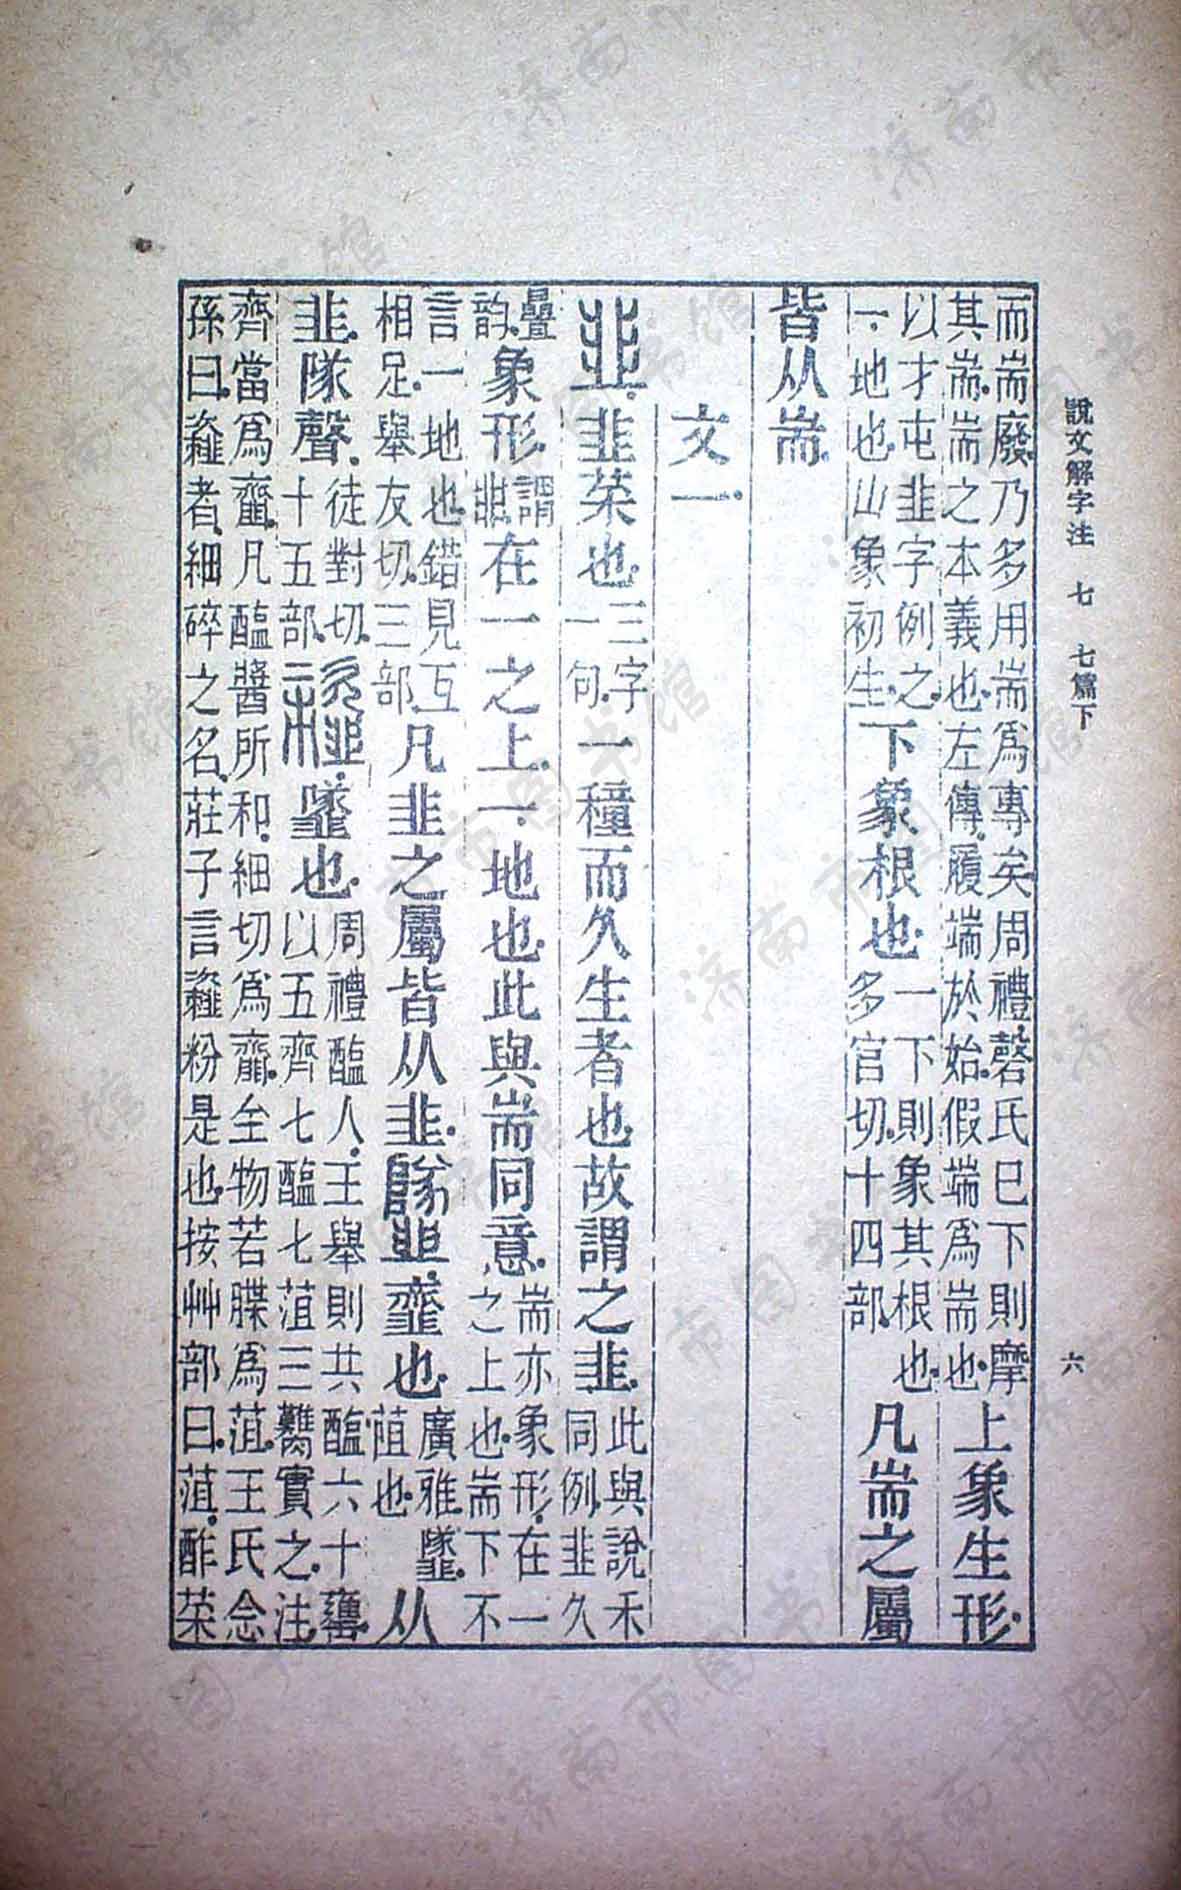 說文解字注 七 七篇下 六
而耑廢乃多用耑爲專矣周禮磬氏已下則摩
其耑耑之本義也左傳履端於始假端爲耑也
上象生形
以才屯韭字例之
一地也山象初生
下象根也
一下則象其根也
多官切十四部
凡耑之屬
皆从耑
文一
韭韭菜也
三字
一句
一穜而久生者也故謂之韭
此與說禾
同例韭久
疊
韵
象形
謂
韭
在一之上一地也此與耑同意
耑亦象形在一
之上也耑下不
言一地也錯見互
相足舉友切三部
凡韭之屬皆从韭䪥䪢也
廣雅䪥
菹也
从
韭隊聲
徒對切
十五部
䪢䪥也
周禮醢人王舉則共醢六十罋
以五齊七醢七菹三臡實之注
齊當爲䪢凡醢醬所和細切爲䪢全物若䐑爲菹王氏念
孫曰䪢者細碎之名莊子言䪢粉是也按艸部曰菹酢菜
济南市图书馆